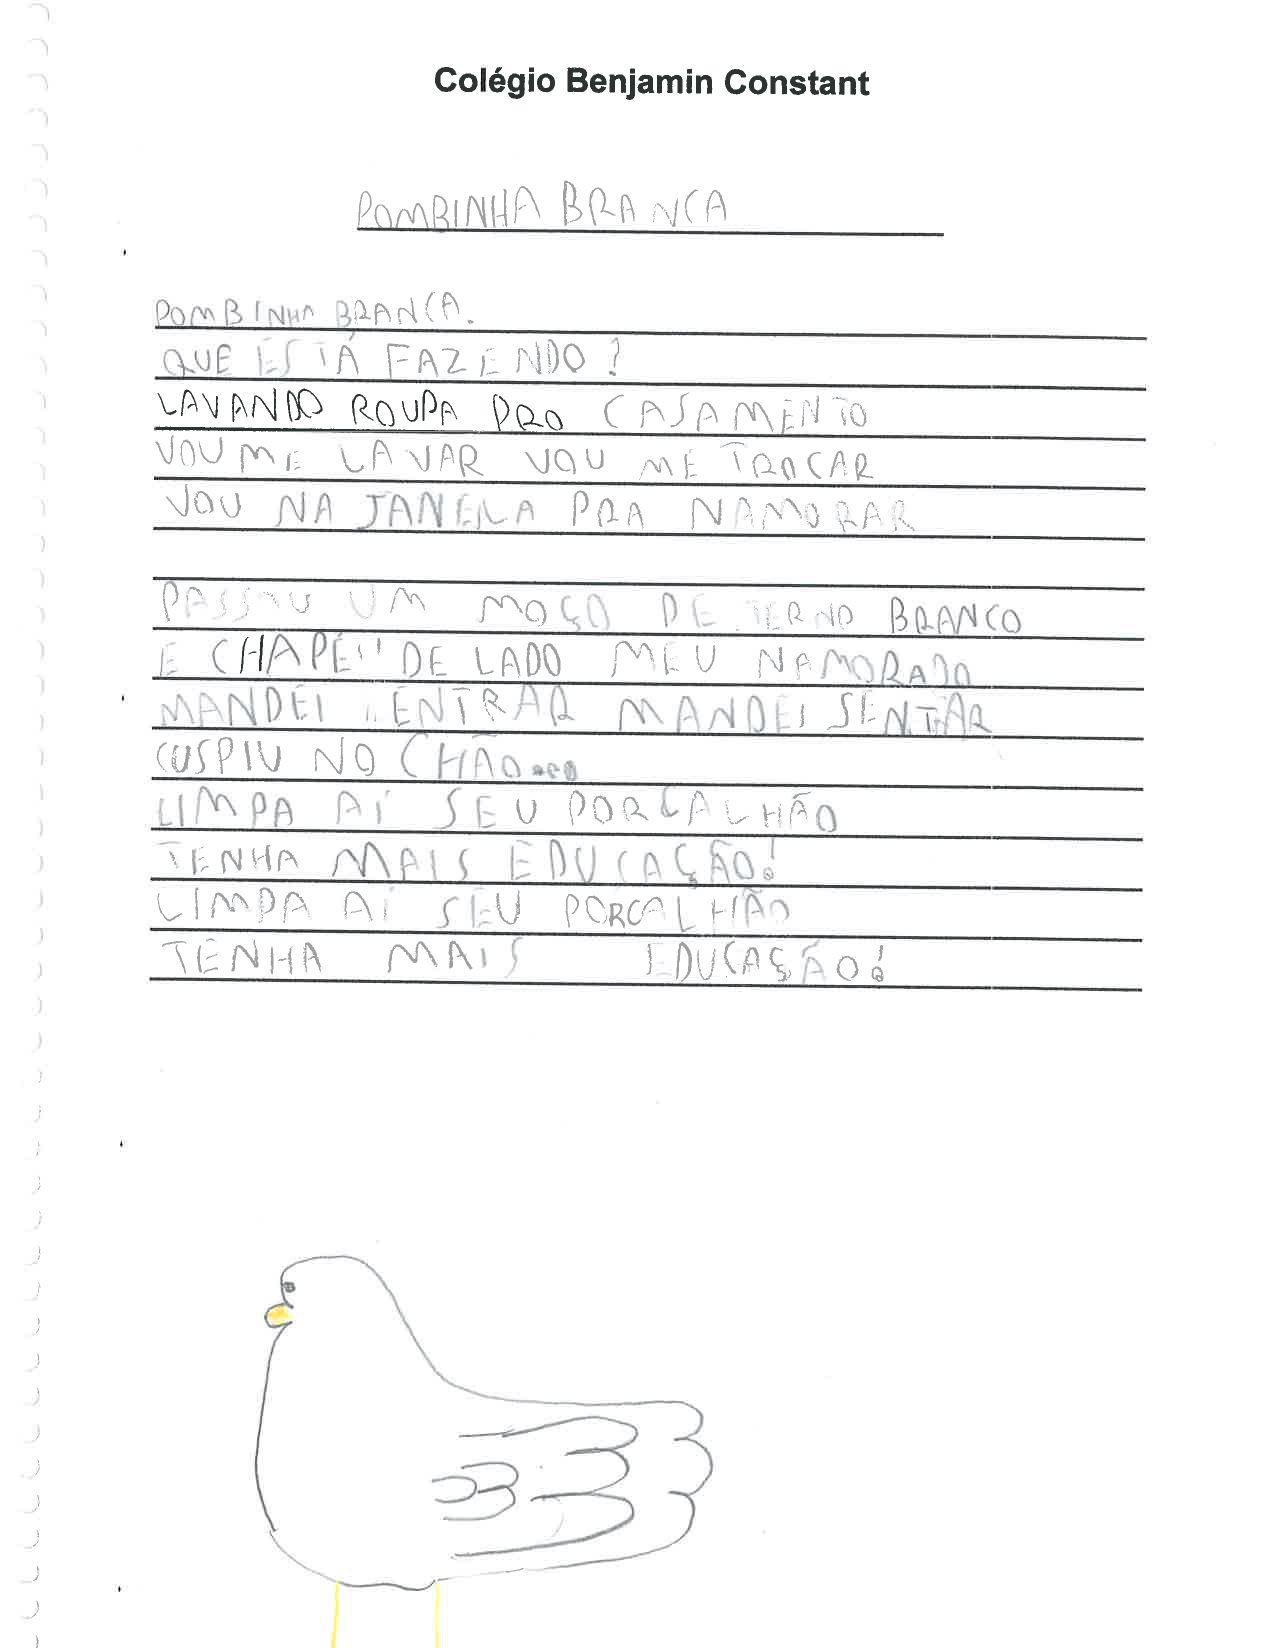 Colégio Benjamin Constant
POMBINHA BRANCA
POMBINHA BRANCA.
QUE ESTÁ FAZENDO?
LAVANDO ROUPA PRO CASAMENTO
VOU ME LAVAR VOU ME TROCAR
VOU NA JANELA PRA NAMORAR
PASSOU UM MOÇO DE TERNO BRANCO
E CHAPÉU DE LADO MEU NAMORADO
MANDEI ENTRAR MANDEI SENTAR
CUSPIU NO CHÃO...
LIMPA AÍ SEU PORCALHÃO
TENHA MAIS EDUCAÇÃO!
LIMPA AÍ SEU PORCALHÃO
TENHA MAIS EDUCAÇÃO!